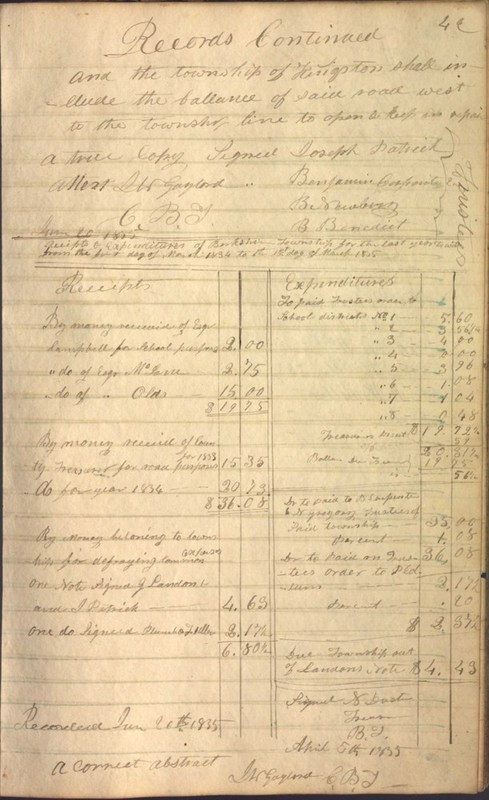 42
Records Continued
and the township of Kingston shall in-
-clude the ballance of said road west
to the township line to open & keep in repair
a true Copy Signed Joseph Patrick
attest J W Gaylord " Benjamin Carpenter
C. B. T. B. Newberry
B. Benedict
Trustees
June 20 1835
Receipts & Expenditures of Berkshire Township for the last year
from the first day of March 1834 to the 1st day of March 1835
Receipts
By money received of Esqr
Campbell for School purposes 2.00
" do of Esqr McGene 2.75
" do of " Olds 15 00
$ 19 75
By money received of Coun
-ty Treasurer for road purposes for 1833 15 35
Do for year 1834 20 73
$ 36.08
By Money beloning to town
ship for defraying common expenses
one Note Signed J Landon &
and J Patrick 4.63
one do Signed 2.17½
6.80½
Expenditures
To paid Trustees order to
School districts No 1 5.60
" 2
" 3 4 00
" 4
" 5 3 96
" 6 1.08
" 7 1 04
" 8 0 48
$ 19 72½
Treasurer
20.31½
19 75
56½
Dr to paid to B Carpenter
& N Gregory Trustees of
Said township 35.00
Percent 1.08
36,08
Dr To Paid on Trus-
-tees order to
2.17½
.20
$ 2.37½
Due Township out
of Landons Note $4.43
Signed N Dust
Treas
B. T.
April 5th 1835
Recorded June 20th 1835
a correct abstract
J W Gaylord C B T